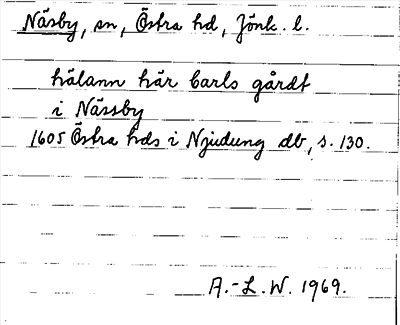 Näsby, sn, Östra hd, Jönk. l.
hälann här Carls gårdt
i Nässby
1605 Östra hds i Njudung db, s. 130.
A.-L. W. 1969.